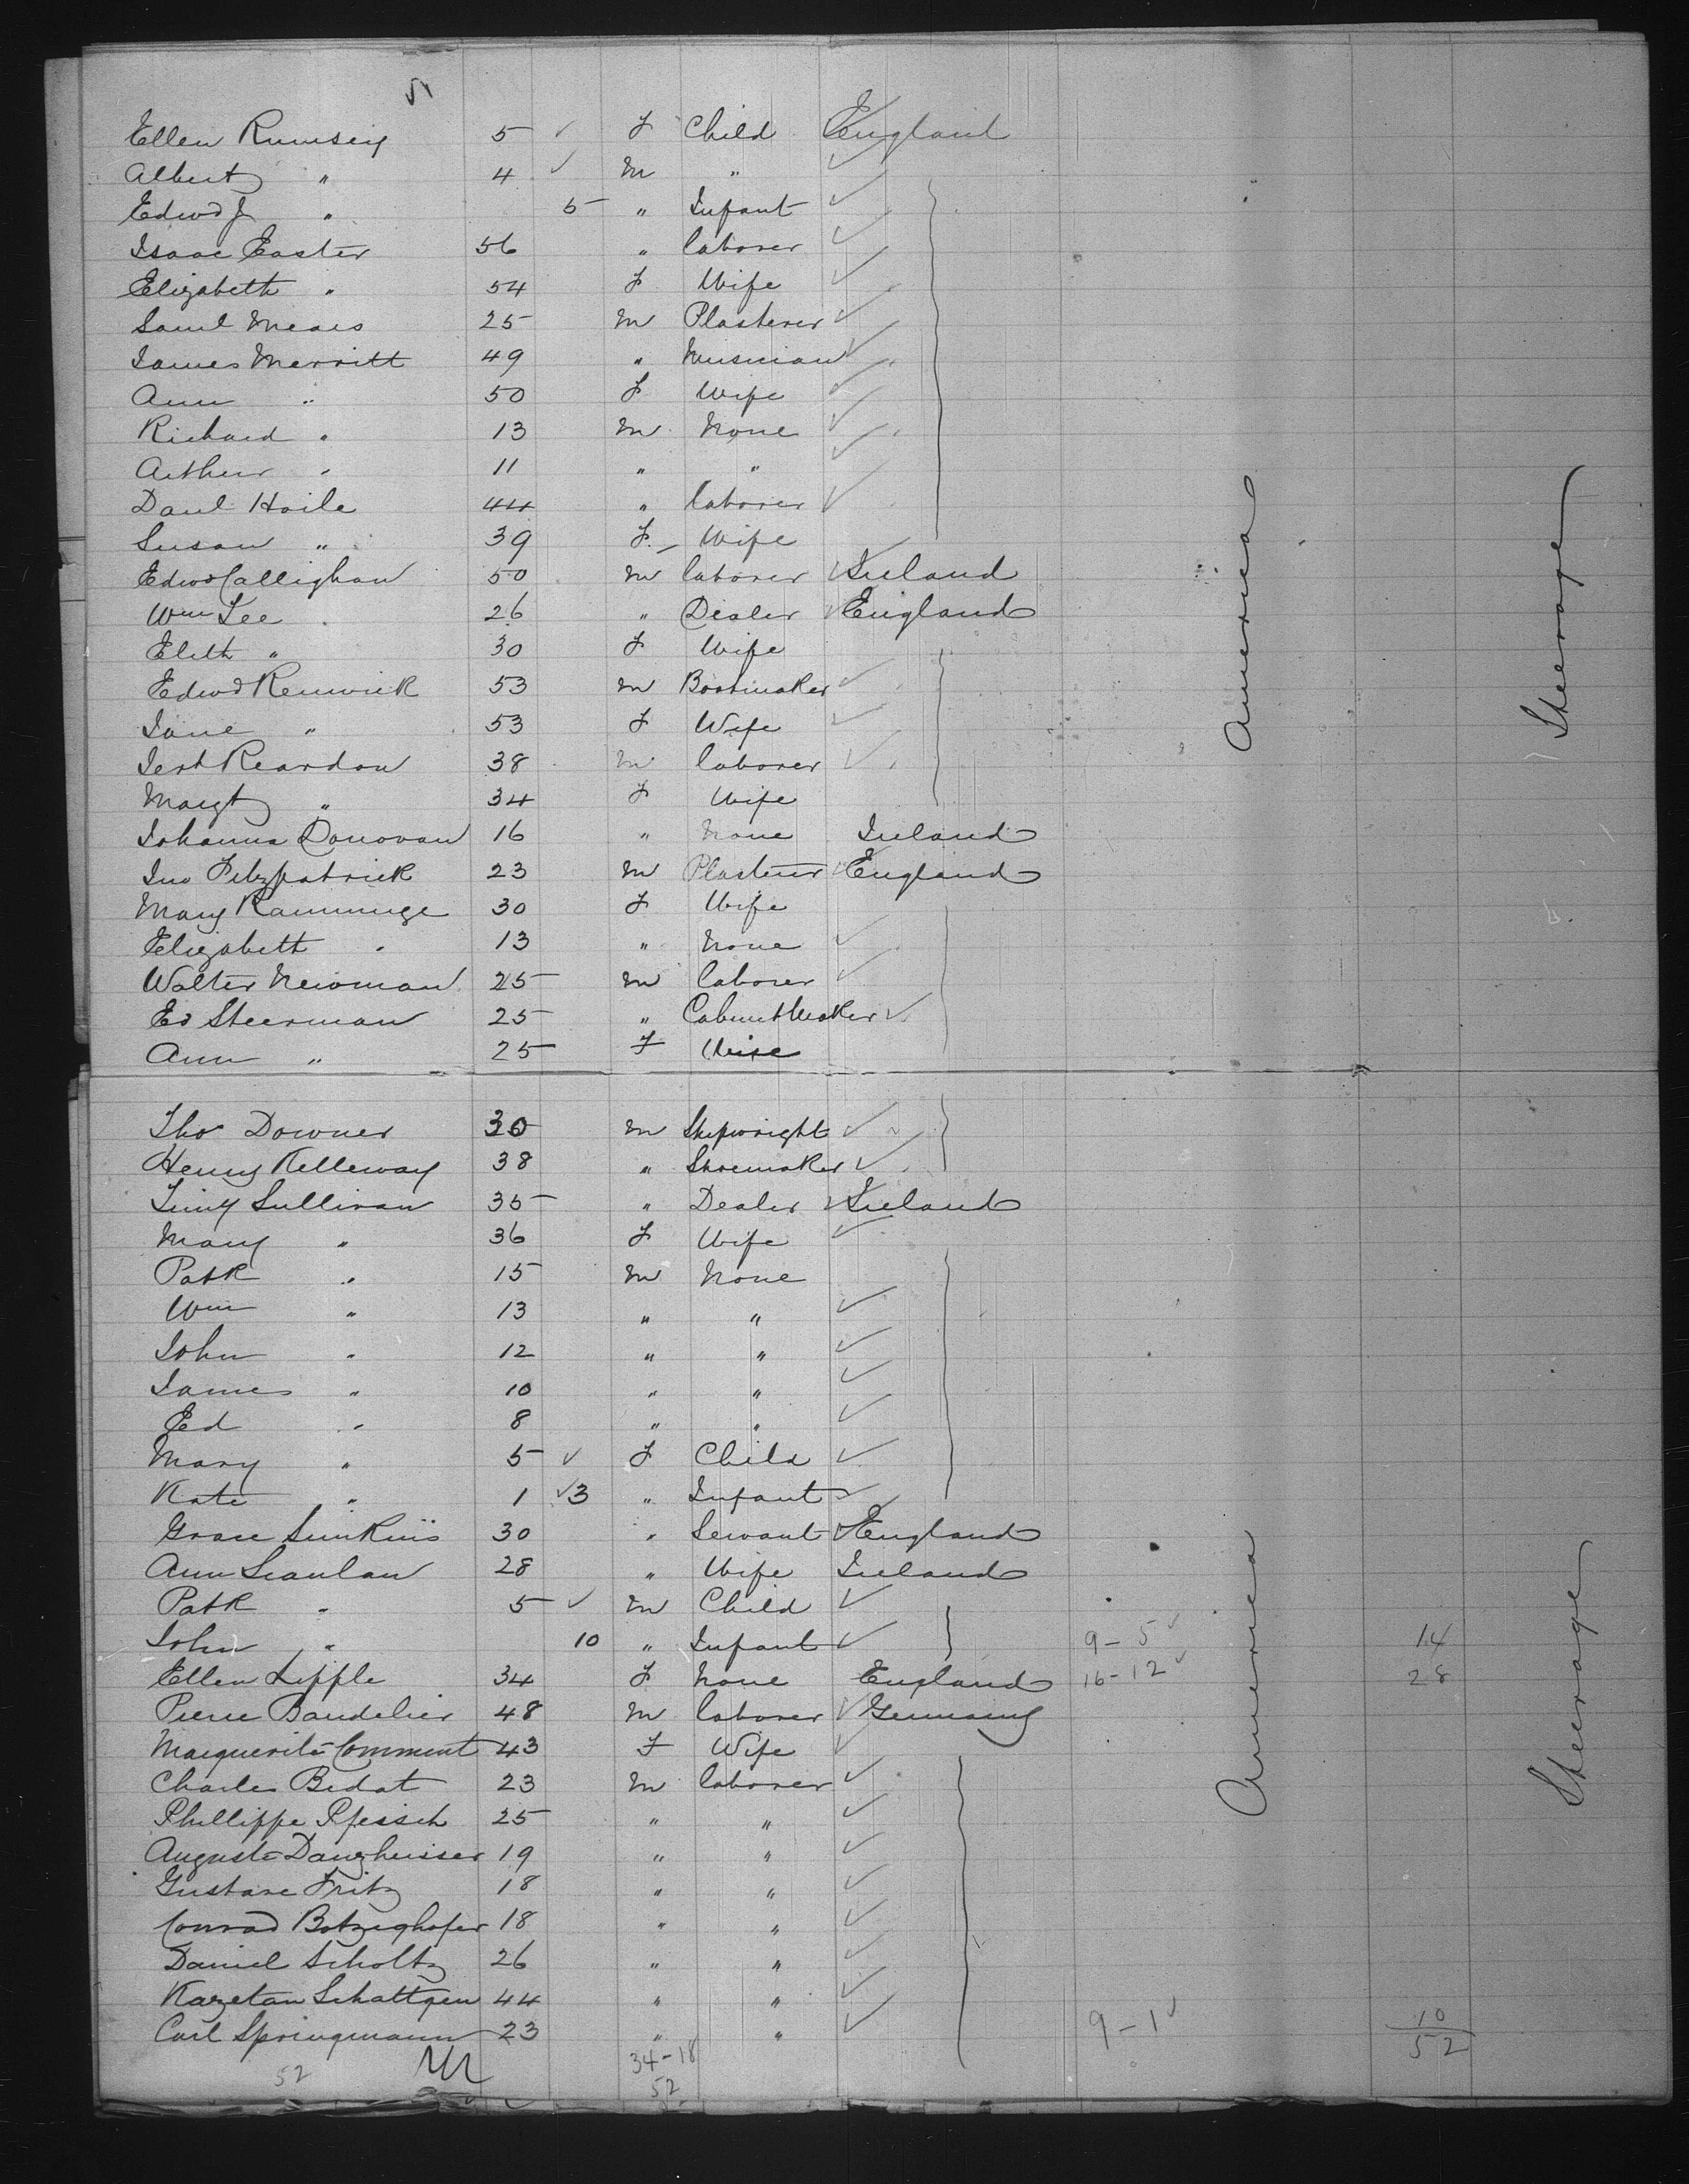 5
Ellen Rumsey 5 ✓ F Child England
Albert " 4 ✓ M " ✓
Edwd J " 5 " Infant ✓
Isaac Easter 56 " laborer ✓
Elizabeth " 54 F Wife ✓
Saml Mears 25 M Plasterer ✓
James Merritt 49 " Musician ✓
Ann " 50 F Wife ✓
Richard " 13 M None ✓
Arthur " 11 " " ✓
Danl Haile 44 " laborer ✓
Susan " 39 F Wife
Edwd Callighan 50 M laborer Ireland
Wm Lee 26 " Dealer England
Elith " 30 F Wife
Edwd Renwick 53 M Bootmaker ✓
Jane " 53 F Wife ✓
Jerh Reardon 38 M laborer ✓
Margt " 34 F Wife
Johanna Donovan 16 " None Ireland
Jno Fitzpatrick 23 M Plasterer England
Mary 30 F Wife
Elizabeth " 13 " None ✓
Walter Newman 25 M laborer ✓
Ed Steerman 25 " CabinetMaker ✓
Ann " 25 F Wife
America
Steerage
Tho Downer 30 M Shipwright ✓
Henry Kelleway 38 " Shoemaker ✓
Timy Sullivan 35 " Dealer Ireland
Mary " 36 F Wife ✓
Patk " 15 M None
Wm " 13 " " ✓
John " 12 " " ✓
James " 10 " " ✓
Ed " 8 " " ✓
Mary " 5 ✓ F Child ✓
Kate " 1 ✓3 " Infant ✓
Grace Simkins 30 " Servant England
Ann Scanlan 28 " Wife Ireland
Patk " 5 ✓ M Child ✓
John " 10 " Infant ✓ 9-5 ✓ 14
Ellen Lipple 34 F None England 16-12 ✓ 28
Pierre Baudelier 48 M laborer Germany
Marguerite Comment 43 F Wife ✓
Charles Bedat 23 M laborer ✓
Phillippe Pfersich 25 " " ✓
Auguste Daugheisser 19 " " ✓
Gustave Fritz 18 " " ✓
Conrad Botzighofer 18 " " ✓
Daniel Scholtz 26 " " ✓
Kazetan Schattgen 44 " " ✓
Carl Springmann 23 " " ✓ 9-1 ✓ 10
America
Steerage
52 34-18 52
52